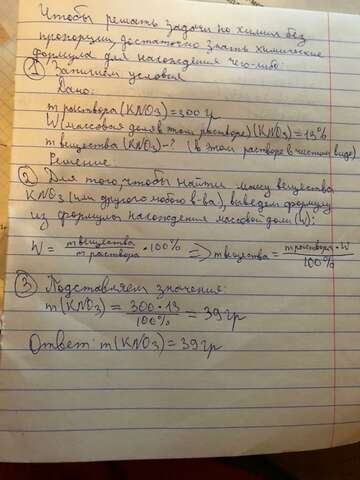 Чтобы решать задачи по химии без
пропорции, достаточно знать химические
формула для нахождения чего-либо:
① Запишем условия
Дано:
m раствора (KNO3) = 300 г
W (массовая доля в этом растворе) (KNO3) = 13%
m вещества (KNO3) - ? (в этом растворе в чистом виде)
Решение:
② Для того, чтобы найти массу вещества
KNO3 (или другого любого в-ва), выведем формулу
из формулы нахождения массовой доли (W):
W = m вещества / m раствора · 100% => m вещества = m раствора · W / 100%
③ Подставляем значение:
m (KNO3) = 300 · 13 / 100% = 39 гр
Ответ: m (KNO3) = 39 гр